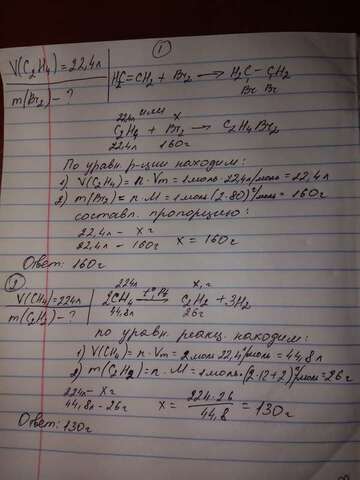 ①
V(C₂H₄)=22,4л
m(Br₂)-?
H₂C=CH₂ + Br₂ → H₂C-CH₂
Br Br
или
22,4л x
C₂H₄ + Br₂ → C₂H₄Br₂
22,4л 160г
По уравн. р-ции находим:
1) V(C₂H₄)=n·Vm=1моль·22,4л/моль=22,4л
2) m(Br₂)=n·M=1моль(2·80)г/моль=160г
составл. пропорцию:
22,4л - xг
22,4л - 160г x=160г
Ответ: 160г
②
V(CH₄)=224л
m(C₂H₂)-?
224л x, г
2CH₄ → C₂H₂+3H₂
44,8л 26г
по уравн. реакц. находим:
1) V(CH₄)=n·Vm=2моль 22,4л/моль=44,8л
2) m(C₂H₂)=n·M=1моль·(2·12+2)г/моль=26г
224л - xг
44,8л - 26г x=224·26/44,8=130г
Ответ: 130г